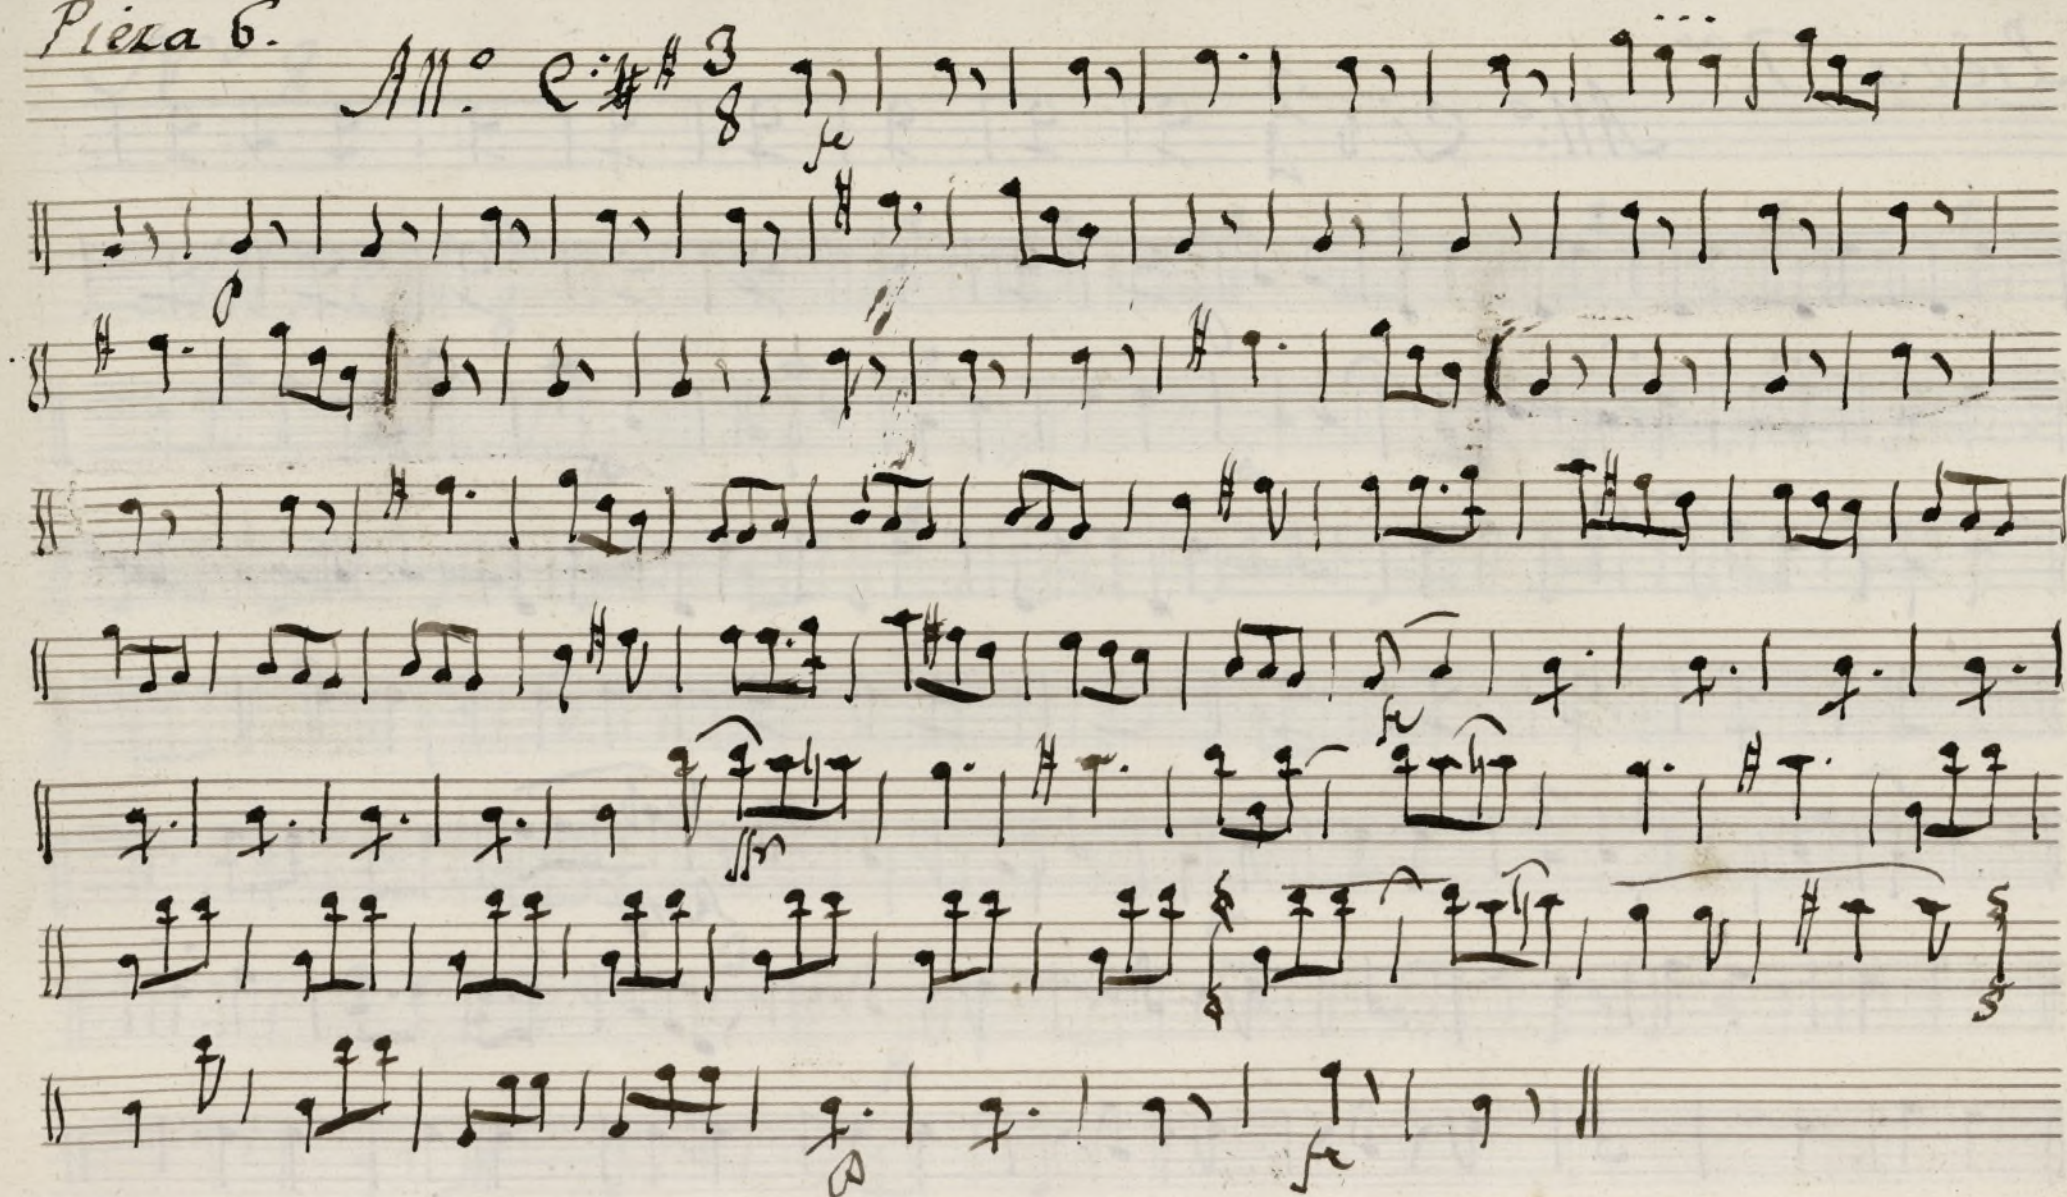 Pieza 6.
All.º 3 8
fe
p
fe
p
fe